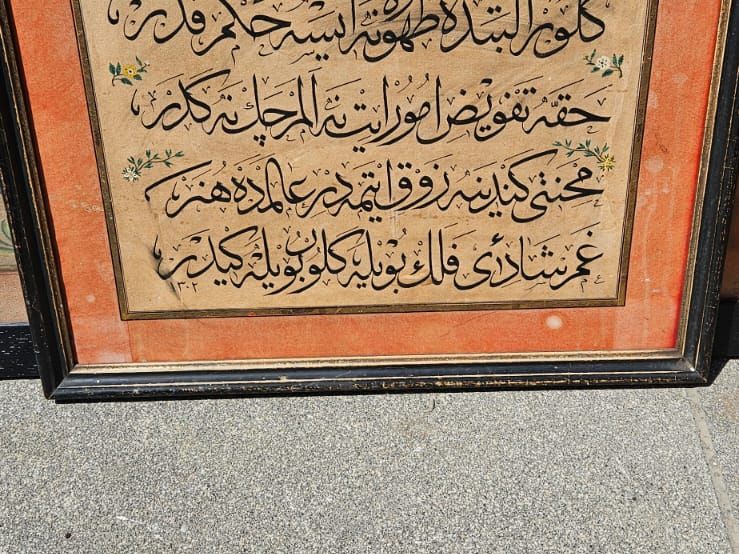 كلور البته ظهوره نه ايسه حكم قدر
حقه تفويض امور ايت نه الم چك نه كدر
محنتى كندينه ذوق ايتمه در عالمده هنر
غم و شادئ فلك بويله كلور بويله كيدر
١٣٠٢